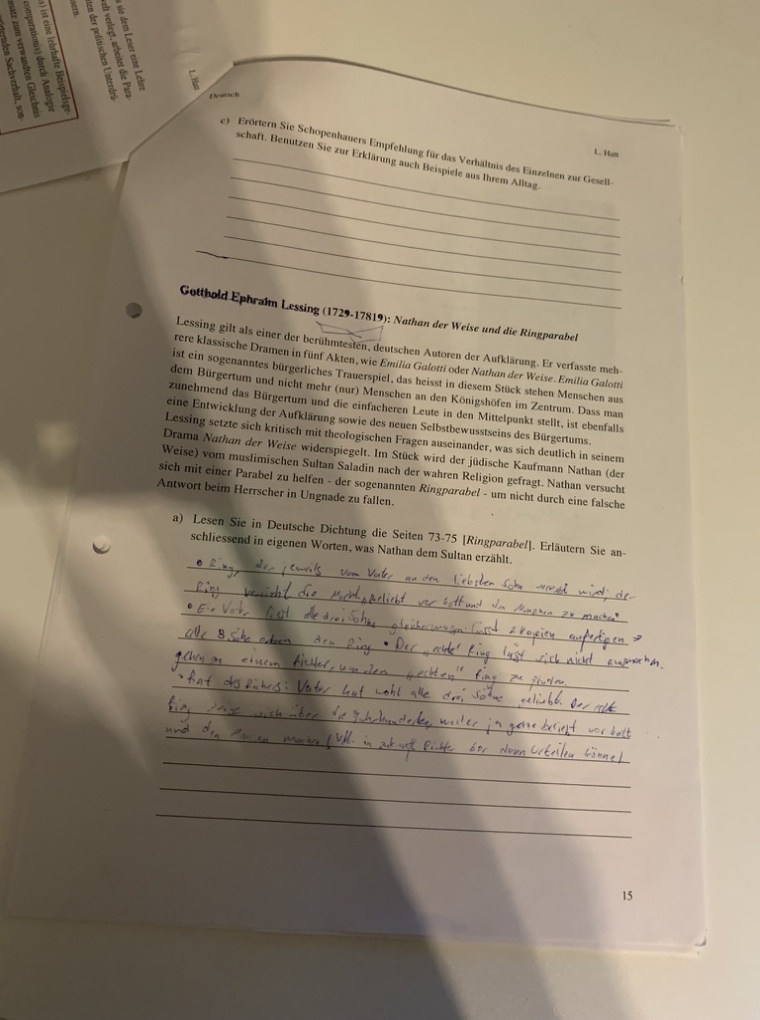 s sie dem Leser eine Lehre
welt verlegt, arbeitet die Para-
ten der politischen Unterdrü-
sern.
) ist eine lehrhafte Beispielge-
comparationis) durch Analogie
nsatz zum verwandten Gleichnis
Sachverhalt, son-
L. Hutt
Deutsch
L. Hutt
c) Erörtern Sie Schopenhauers Empfehlung für das Verhältnis des Einzelnen zur Gesell-
schaft. Benutzen Sie zur Erklärung auch Beispiele aus Ihrem Alltag.
Gotthold Ephraim Lessing (1729-17819): Nathan der Weise und die Ringparabel
Lessing gilt als einer der berühmtesten, deutschen Autoren der Aufklärung. Er verfasste meh-
rere klassische Dramen in fünf Akten, wie Emilia Galotti oder Nathan der Weise. Emilia Galotti
ist ein sogenanntes bürgerliches Trauerspiel, das heisst in diesem Stück stehen Menschen aus
dem Bürgertum und nicht mehr (nur) Menschen an den Königshöfen im Zentrum. Dass man
zunehmend das Bürgertum und die einfacheren Leute in den Mittelpunkt stellt, ist ebenfalls
eine Entwicklung der Aufklärung sowie des neuen Selbstbewusstseins des Bürgertums.
Lessing setzte sich kritisch mit theologischen Fragen auseinander, was sich deutlich in seinem
Drama Nathan der Weise widerspiegelt. Im Stück wird der jüdische Kaufmann Nathan (der
Weise) vom muslimischen Sultan Saladin nach der wahren Religion gefragt. Nathan versucht
sich mit einer Parabel zu helfen - der sogenannten Ringparabel - um nicht durch eine falsche
Antwort beim Herrscher in Ungnade zu fallen.
a) Lesen Sie in Deutsche Dichtung die Seiten 73-75 [Ringparabel]. Erläutern Sie an-
schliessend in eigenen Worten, was Nathan dem Sultan erzählt.
• Ring, der jeweils vom Vater an den liebsten Sohn vererbt wird. der
Ring verleiht die Macht, beliebt vor Gott und den Menschen zu machen
• Ein Vater liebt alle drei Söhne lässt 2 Kopien anfertigen →
alle 3 Söhne erben den Ring • Der „echte" Ring lässt sich nicht ausmachen.
gehen zu einem Richter, um den „echten" Ring zu finden
• Rat des Richters: Vater hat wohl alle drei Söhne geliebt. Der
Ring sich über die Jahrhunderte weiter beliebt vor Gott
und den machen in Zukunft Richter darüber urteilen können!
15